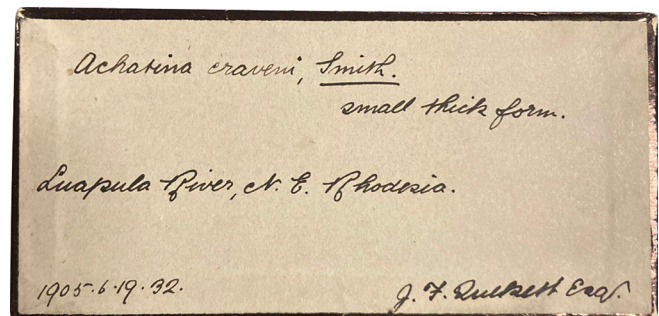 Achatina craveni, Smith.
small thick form.
Luapula River, N. E. Rhodesia.
1905.6.19.32.
J. F. Quekett Esq.